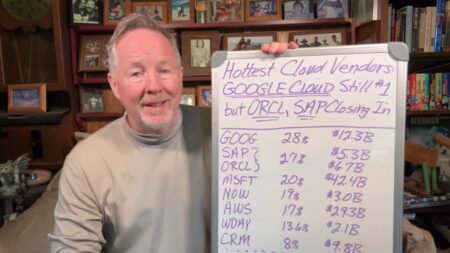 Hottest Cloud Vendors:
GOOGLE CLOUD Still #1
but ORCL, SAP Closing In
GOOG 28% $12.3B
SAP } $5.3B
27%
ORCL } $6.7B
MSFT 20% $42.4B
NOW 19% $3.0B
AWS 17% $29.3B
WDAY 13.6% $2.1B
CRM 8% $9.8B